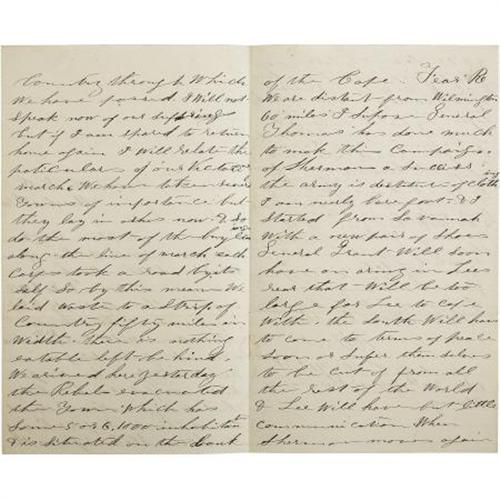 Country through Which
We have passed. I Will not
Speak now of our
but if I am spared to return
home again I will relate the
peticulars of our Victorious
march. We have taken several
Towns of importance but
they lay in ashes now. & so
do the most of the buildings
along the line of march each
Corps took a road by its
Self So by this mean We
laid waste to a Strip of
Country fifty miles in
Width. There is nothing
eatable left be hind.
We arived here yesterday
the Rebels evacuated
the Town Which has
Some 5 or 6,000 inhabitan
& is Situated on the bank
of the Cape Fear R
We are distant from Wilmington
60 miles I Supose General
Thomas has done much
to make this Campaign
of Sherman a Success
the army is destitute of cloth
I am nearly bare foot & I
Started from Savannah
With a new pair of Shoes
General Grant Will Soon
have an army in Lees
rear that Will be too
large for Lee to cope
With. the South Will have
to come to terms of peace
Soon or Sufer them selves
to be cut of from all
the rest of the World
& Lee Will have but little
communication When
Sherman moves again